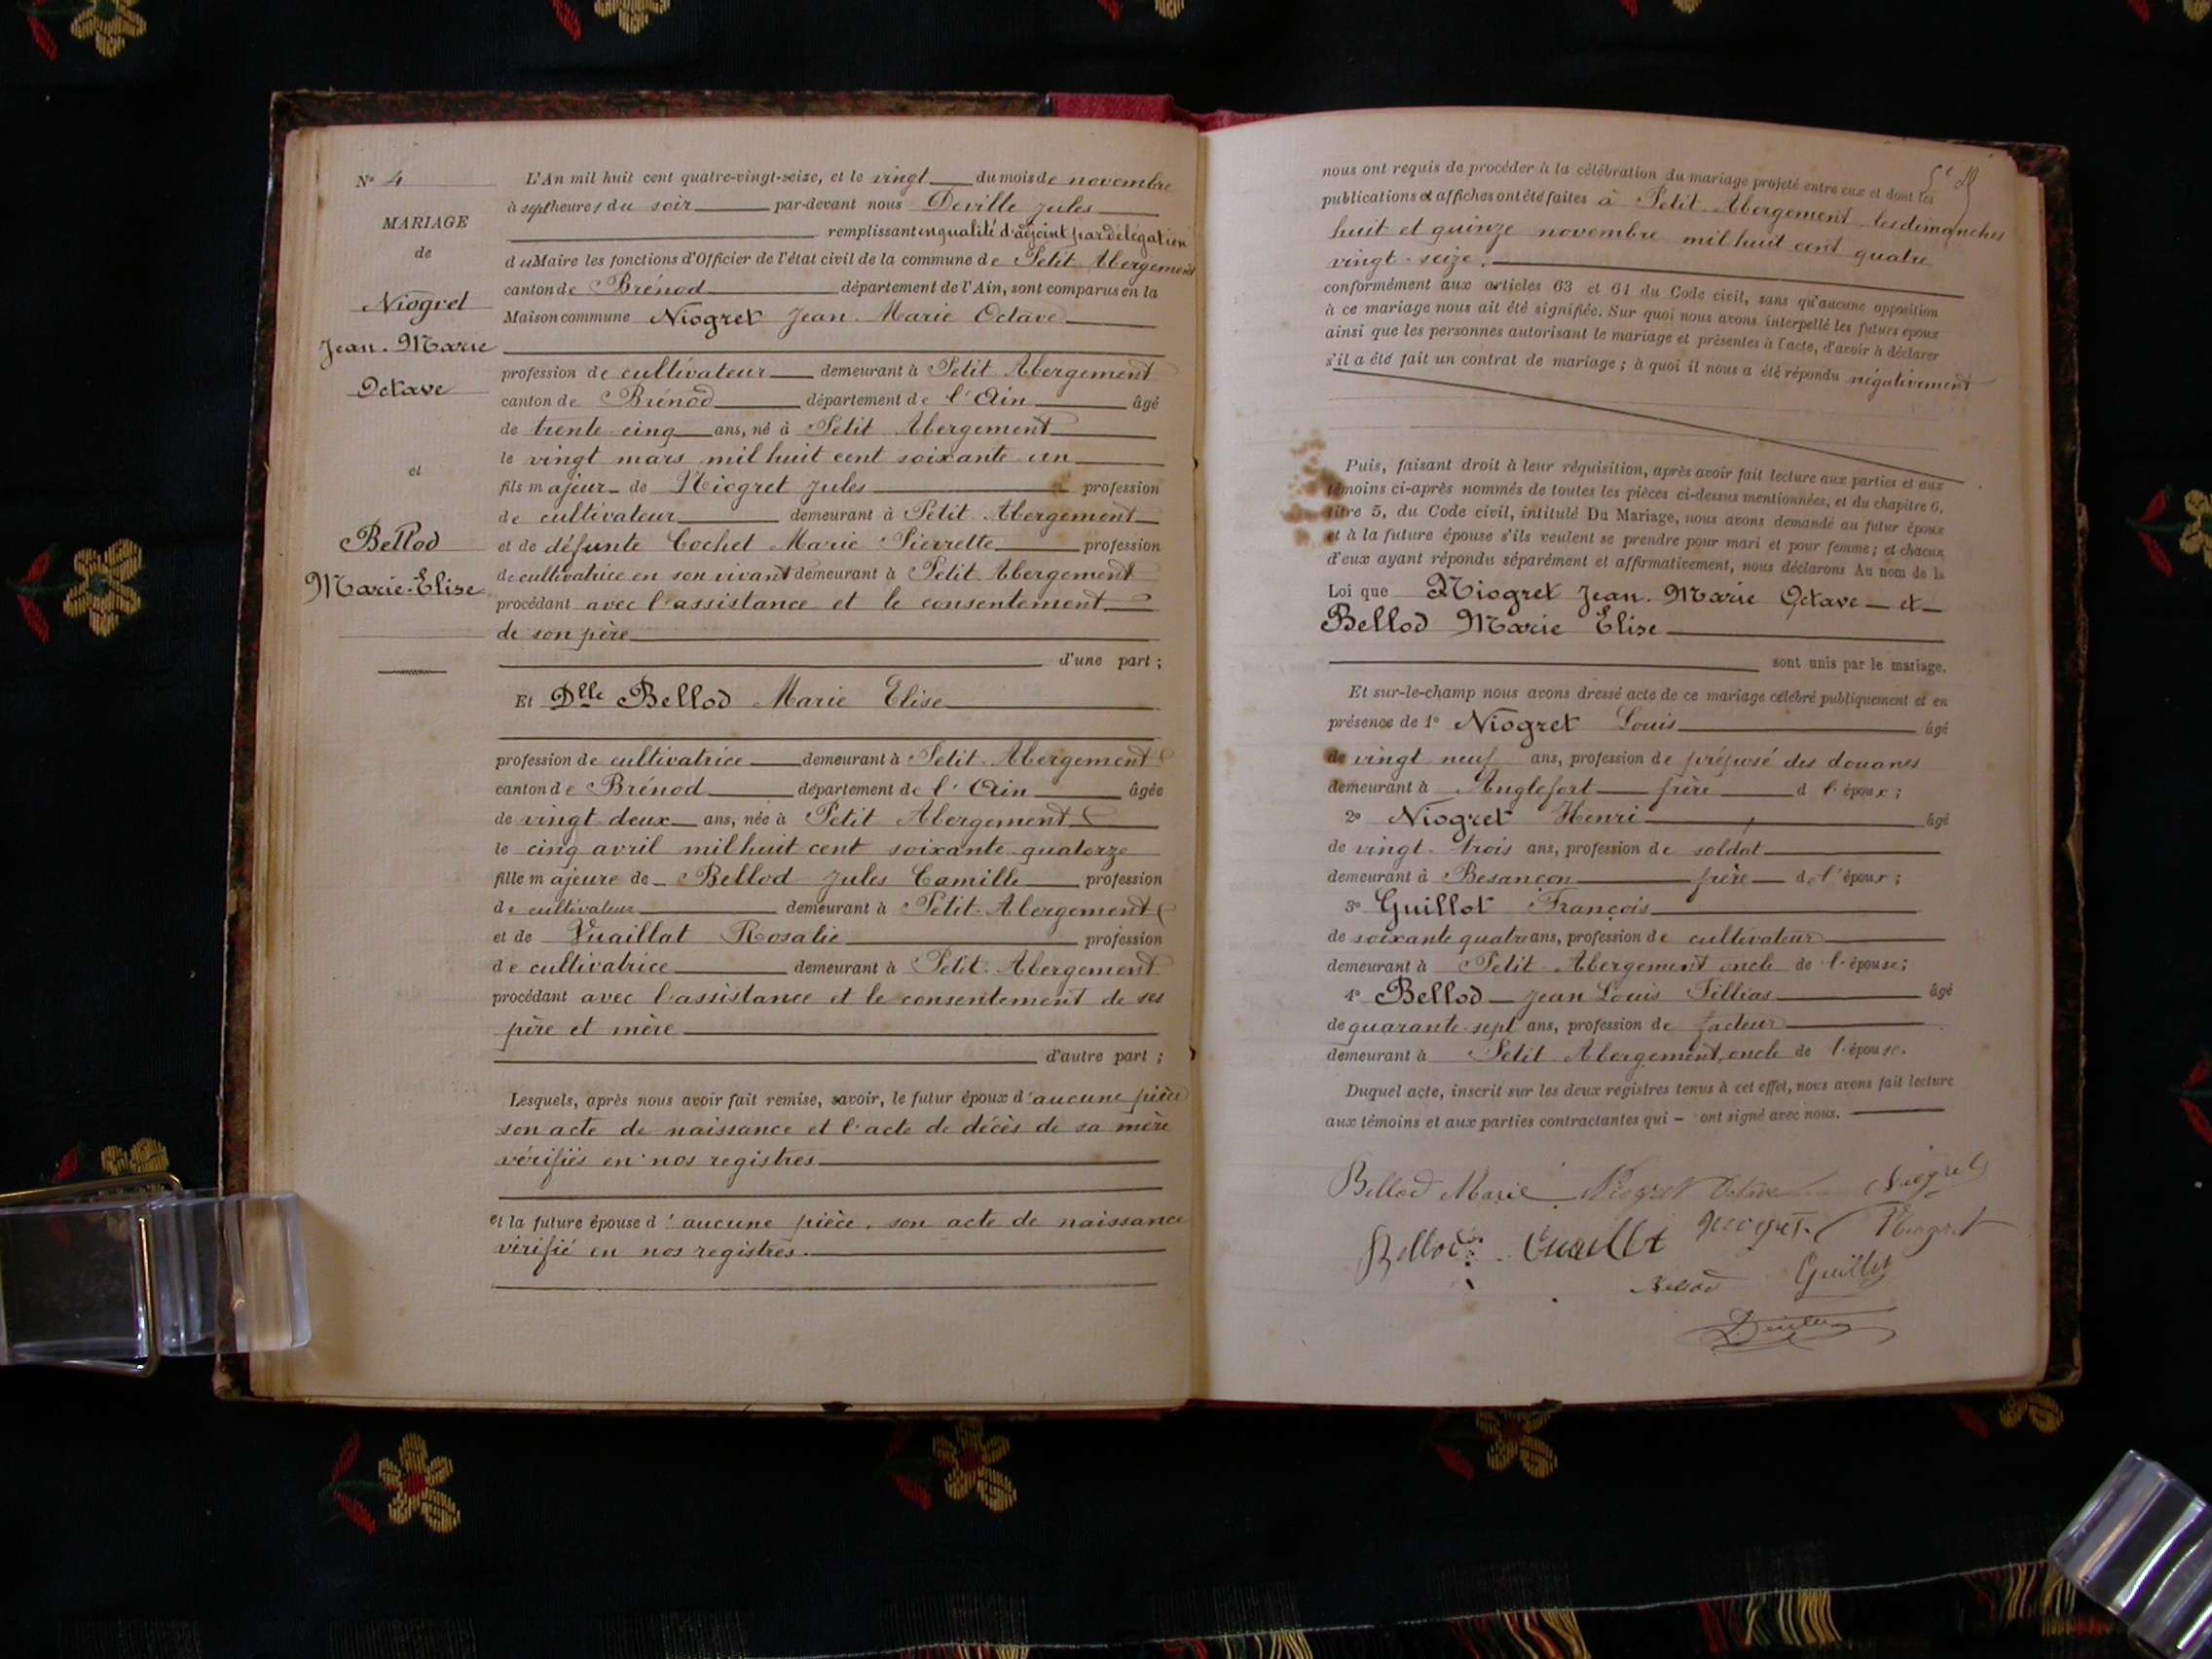 N° 4
MARIAGE
de
Niogret
Jean-Marie
Octave
et
Bellod
Marie-Elise
L'An mil huit cent quatre-vingt-seize, et le vingt du mois de novembre
à sept heures du soir par-devant nous Deville Jules
remplissant en qualité d'adjoint par délégation
du Maire les fonctions d'Officier de l'état civil de la commune de Petit Abergement
canton de Brénod département de l'Ain, sont comparus en la
Maison commune Niogret Jean Marie Octave
profession de cultivateur demeurant à Petit Abergement
canton de Brénod département de l'Ain âgé
de trente-cinq ans, né à Petit Abergement
le vingt mars mil huit cent soixante-un
fils majeur de Niogret Jules profession
de cultivateur demeurant à Petit Abergement
et de défunte Cochet Marie Pierrette profession
de cultivatrice en son vivant demeurant à Petit Abergement
procédant avec l'assistance et le consentement
de son père
d'une part ;
Et Dlle Bellod Marie Elise
profession de cultivatrice demeurant à Petit Abergement
canton de Brénod département de l'Ain âgée
de vingt-deux ans, née à Petit Abergement
le cinq avril mil huit cent soixante-quatorze
fille majeure de Bellod Jules Camille profession
de cultivateur demeurant à Petit-Abergement
et de Vuaillat Rosalie profession
de cultivatrice demeurant à Petit-Abergement
procédant avec l'assistance et le consentement de ses
père et mère
d'autre part ;
Lesquels, après nous avoir fait remise, savoir, le futur époux d'aucune pièce
son acte de naissance et l'acte de décès de sa mère
vérifiés en nos registres
et la future épouse d'aucune pièce, son acte de naissance
vérifié en nos registres.
nous ont requis de procéder à la célébration du mariage projeté entre eux et dont les
publications et affiches ont été faites à Petit Abergement les dimanches
huit et quinze novembre mil huit cent quatre
vingt-seize.
conformément aux articles 63 et 64 du Code civil, sans qu'aucune opposition
à ce mariage nous ait été signifiée. Sur quoi nous avons interpellé les futurs époux
ainsi que les personnes autorisant le mariage et présentes à l'acte, d'avoir à déclarer
s'il a été fait un contrat de mariage ; à quoi il nous a été répondu négativement
Puis, faisant droit à leur réquisition, après avoir fait lecture aux parties et aux
témoins ci-après nommés de toutes les pièces ci-dessus mentionnées, et du chapitre 6,
titre 5, du Code civil, intitulé Du Mariage, nous avons demandé au futur époux
et à la future épouse s'ils veulent se prendre pour mari et pour femme ; et chacun
d'eux ayant répondu séparément et affirmativement, nous déclarons Au nom de la
Loi que Niogret Jean-Marie Octave et
Bellod Marie Elise
sont unis par le mariage.
Et sur-le-champ nous avons dressé acte de ce mariage célébré publiquement et en
présence de 1° Niogret Louis âgé
de vingt neuf ans, profession de préposé des douanes
demeurant à Anglefort frère d l'époux ;
2° Niogret Henri âgé
de vingt-trois ans, profession de soldat
demeurant à Besançon frère de l'époux ;
3° Guillot François
de soixante quatre ans, profession de cultivateur
demeurant à Petit-Abergement oncle de l'épouse ;
4° Bellod Jean Louis Tillias âgé
de quarante-sept ans, profession de facteur
demeurant à Petit Abergement, oncle de l'épouse.
Duquel acte, inscrit sur les deux registres tenus à cet effet, nous avons fait lecture
aux témoins et aux parties contractantes qui ont signé avec nous.
Bellod Marie Niogret Octave Niogret
Bellod Vuaillat Niogret Niogret
Bellod Guillot
Deville